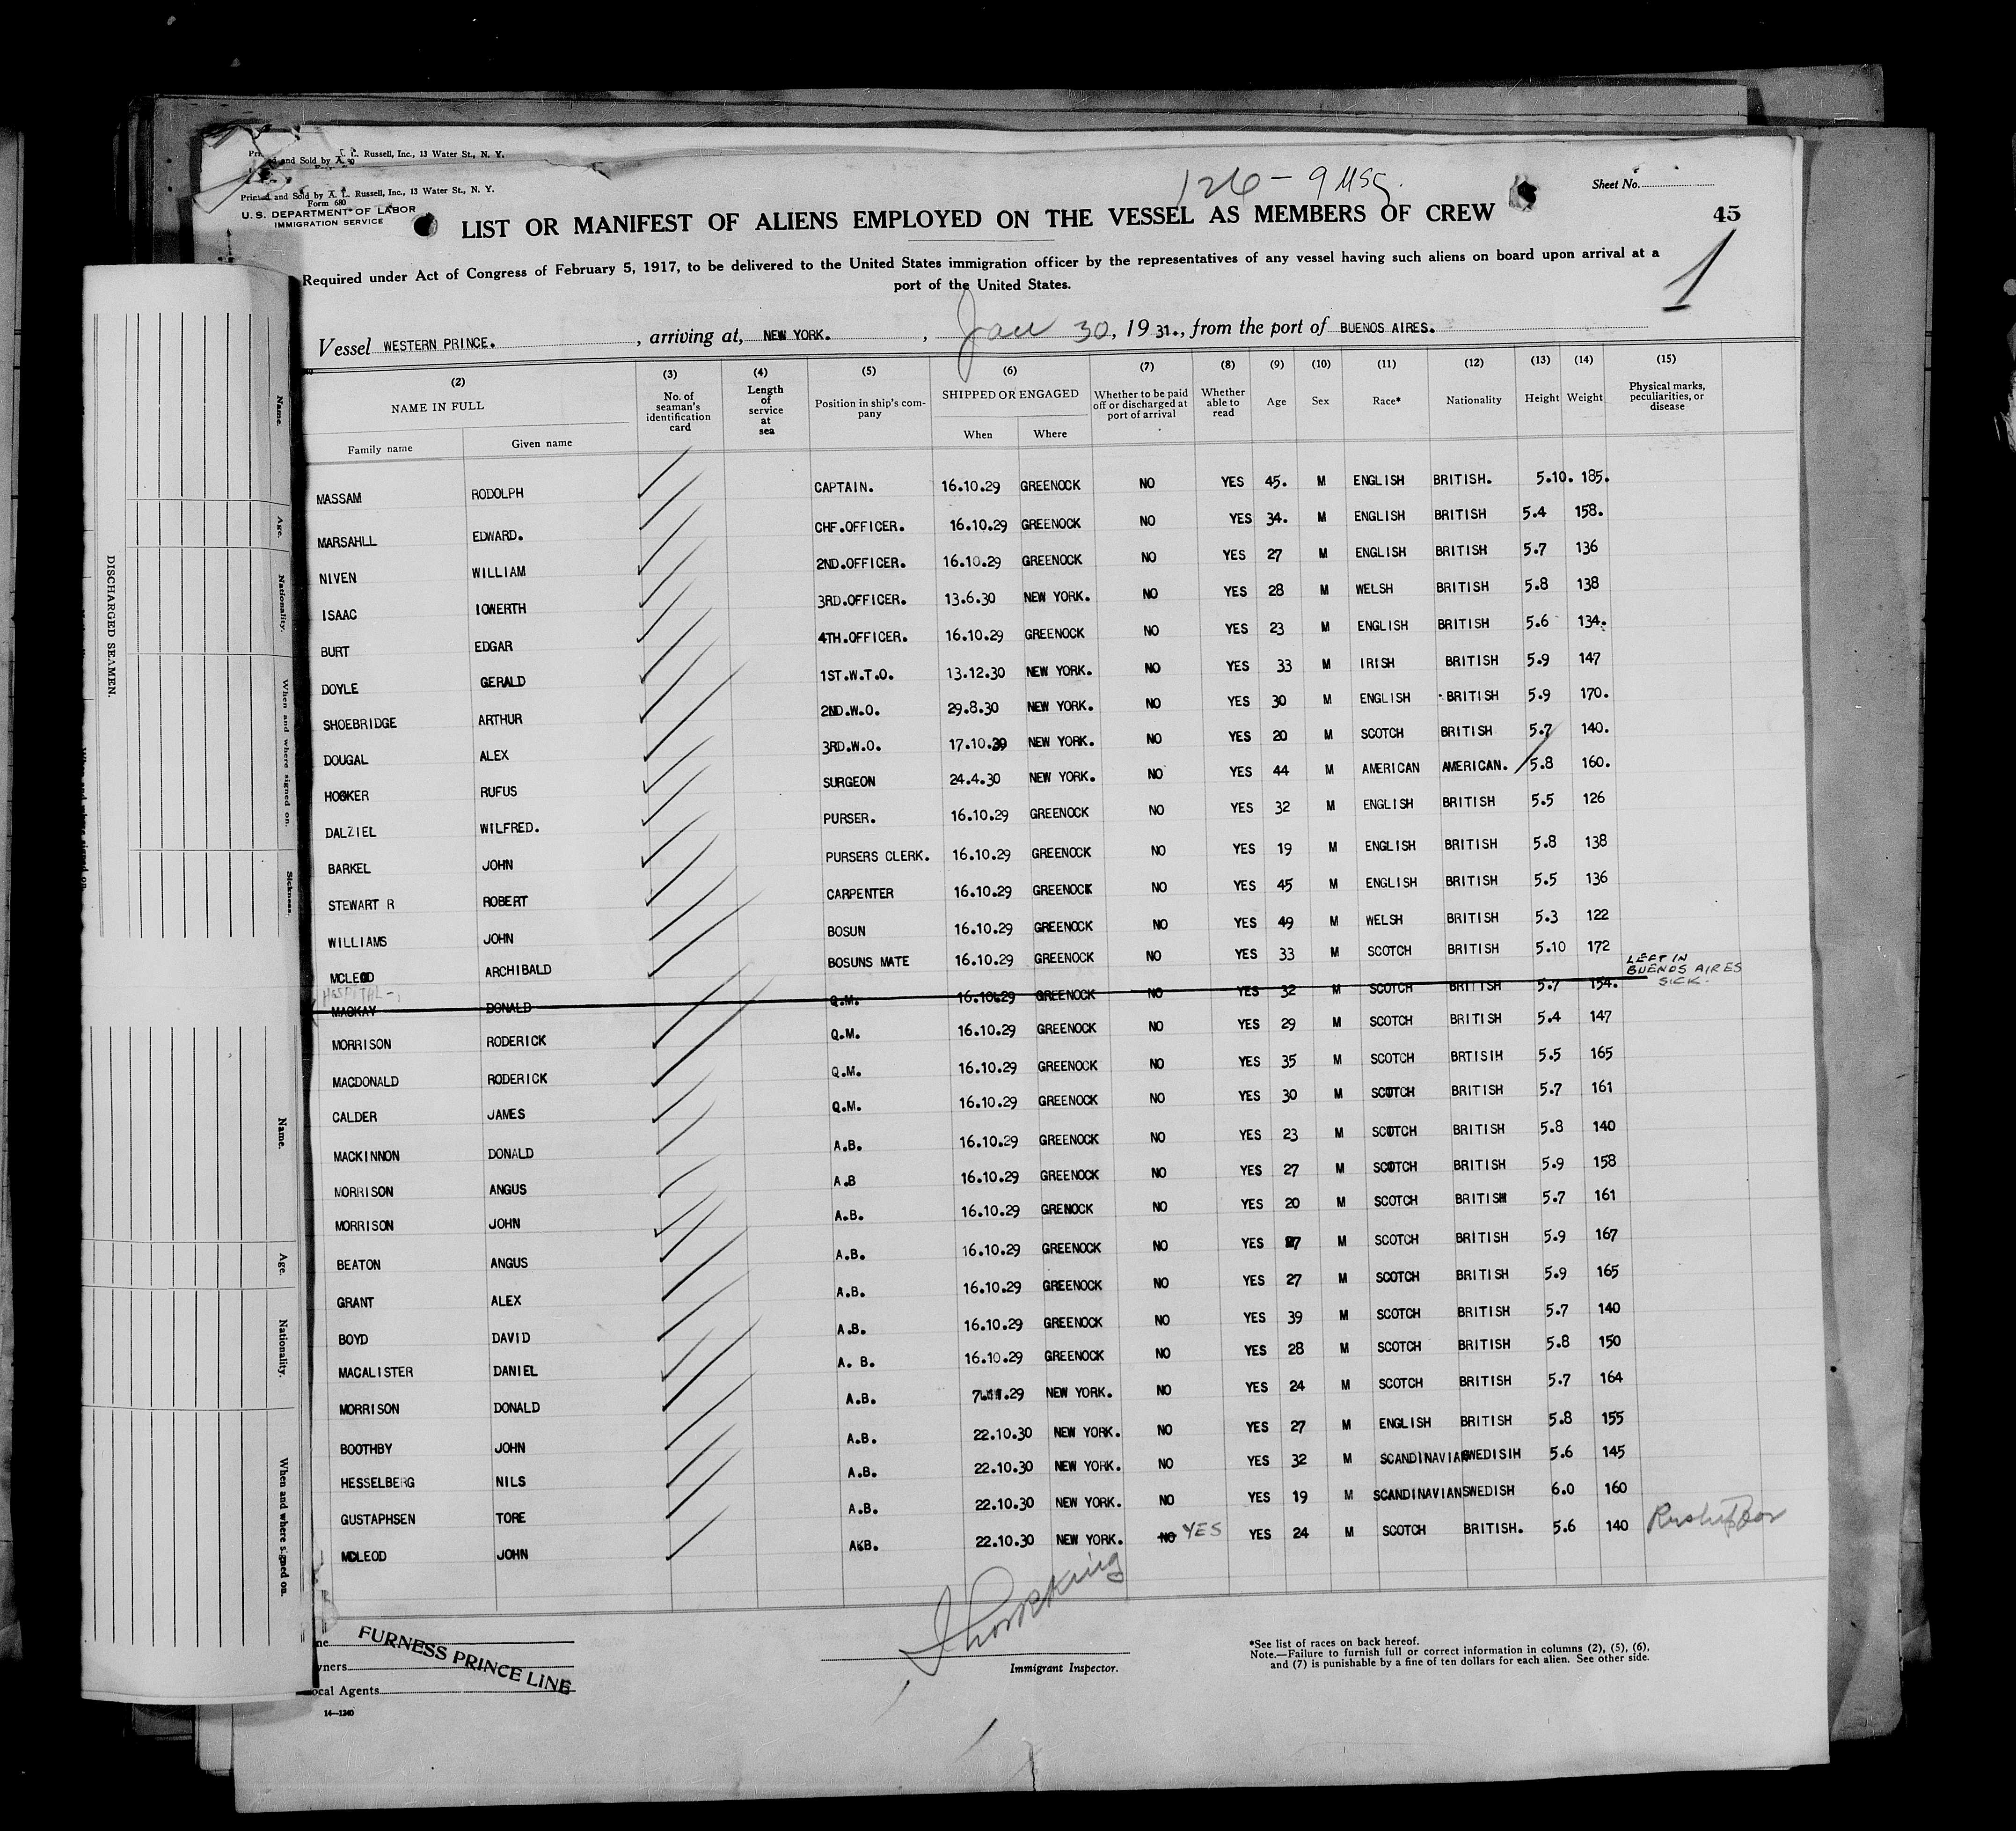 Printed and Sold by A. L. Russell, Inc., 13 Water St., N. Y.
Printed and Sold by A. L. Russell, Inc., 13 Water St., N. Y.
Form 680
U. S. DEPARTMENT OF LABOR
IMMIGRATION SERVICE
Sheet No.
LIST OR MANIFEST OF ALIENS EMPLOYED ON THE VESSEL AS MEMBERS OF CREW
45
1
Required under Act of Congress of February 5, 1917, to be delivered to the United States immigration officer by the representatives of any vessel having such aliens on board upon arrival at a
port of the United States.
Vessel WESTERN PRINCE. , arriving at, NEW YORK. , Jan 30, 1931., from the port of BUENOS AIRES.
(2) (3) (4) (5) (6) (7) (8) (9) (10) (11) (12) (13) (14) (15)
NAME IN FULL No. of seaman's identification card Length of service at sea Position in ship's company SHIPPED OR ENGAGED Whether to be paid off or discharged at port of arrival Whether able to read Age Sex Race* Nationality Height Weight Physical marks, peculiarities, or disease
Family name Given name When Where
MASSAM RODOLPH CAPTAIN. 16.10.29 GREENOCK NO YES 45. M ENGLISH BRITISH. 5.10. 185.
MARSAHLL EDWARD. CHF.OFFICER. 16.10.29 GREENOCK NO YES 34. M ENGLISH BRITISH 5.4 158.
NIVEN WILLIAM 2ND.OFFICER. 16.10.29 GREENOCK NO YES 27 M ENGLISH BRITISH 5.7 136
ISAAC IOWERTH 3RD.OFFICER. 13.6.30 NEW YORK. NO YES 28 M WELSH BRITISH 5.8 138
BURT EDGAR 4TH.OFFICER. 16.10.29 GREENOCK NO YES 23 M ENGLISH BRITISH 5.6 134.
DOYLE GERALD 1ST.W.T.O. 13.12.30 NEW YORK. NO YES 33 M IRISH BRITISH 5.9 147
SHOEBRIDGE ARTHUR 2ND.W.O. 29.8.30 NEW YORK. NO YES 30 M ENGLISH BRITISH 5.9 170.
DOUGAL ALEX 3RD.W.O. 17.10.30 NEW YORK. NO YES 20 M SCOTCH BRITISH 5.7 140.
HOOKER RUFUS SURGEON 24.4.30 NEW YORK. NO YES 44 M AMERICAN AMERICAN. 5.8 160.
DALZIEL WILFRED. PURSER. 16.10.29 GREENOCK NO YES 32 M ENGLISH BRITISH 5.5 126
BARKEL JOHN PURSERS CLERK. 16.10.29 GREENOCK NO YES 19 M ENGLISH BRITISH 5.8 138
STEWART R ROBERT CARPENTER 16.10.29 GREENOCK NO YES 45 M ENGLISH BRITISH 5.5 136
WILLIAMS JOHN BOSUN 16.10.29 GREENOCK NO YES 49 M WELSH BRITISH 5.3 122
MCLEOD ARCHIBALD BOSUNS MATE 16.10.29 GREENOCK NO YES 33 M SCOTCH BRITISH 5.10 172
HOSPITAL -
MACKAY DONALD Q.M. 16.10.29 GREENOCK NO YES 32 M SCOTCH BRITISH 5.7 154. LEFT IN BUENOS AIRES SICK.
MORRISON RODERICK Q.M. 16.10.29 GREENOCK NO YES 29 M SCOTCH BRITISH 5.4 147
MACDONALD RODERICK Q.M. 16.10.29 GREENOCK NO YES 35 M SCOTCH BRTISIH 5.5 165
CALDER JAMES Q.M. 16.10.29 GREENOCK NO YES 30 M SCOTCH BRITISH 5.7 161
MACKINNON DONALD A.B. 16.10.29 GREENOCK NO YES 23 M SCOTCH BRITISH 5.8 140
MORRISON ANGUS A.B 16.10.29 GREENOCK NO YES 27 M SCOTCH BRITISH 5.9 158
MORRISON JOHN A.B. 16.10.29 GRENOCK NO YES 20 M SCOTCH BRITISH 5.7 161
BEATON ANGUS A.B. 16.10.29 GREENOCK NO YES 27 M SCOTCH BRITISH 5.9 167
GRANT ALEX A.B. 16.10.29 GREENOCK NO YES 27 M SCOTCH BRITISH 5.9 165
BOYD DAVID A.B. 16.10.29 GREENOCK NO YES 39 M SCOTCH BRITISH 5.7 140
MACALISTER DANIEL A. B. 16.10.29 GREENOCK NO YES 28 M SCOTCH BRITISH 5.8 150
MORRISON DONALD A.B. NEW YORK. NO YES 24 M SCOTCH BRITISH 5.7 164
BOOTHBY JOHN A.B. 22.10.30 NEW YORK. NO YES 27 M ENGLISH BRITISH 5.8 155
HESSELBERG NILS A.B. 22.10.30 NEW YORK. NO YES 32 M SCANDINAVIAN SWEDISIH 5.6 145
GUSTAPHSEN TORE A.B. 22.10.30 NEW YORK. NO YES 19 M SCANDINAVIAN SWEDISH 6.0 160
MCLEOD JOHN 22.10.30 NEW YORK. NO YES YES 24 M SCOTCH BRITISH. 5.6 140
FURNESS PRINCE LINE
Immigrant Inspector.
Local Agents
14—1240
*See list of races on back hereof.
Note.—Failure to furnish full or correct information in columns (2), (5), (6),
and (7) is punishable by a fine of ten dollars for each alien. See other side.
DISCHARGED SEAMEN.
Name.
Age.
Nationality.
When and where signed on.
Sickness.
Name.
Age.
Nationality.
When and where signed on.